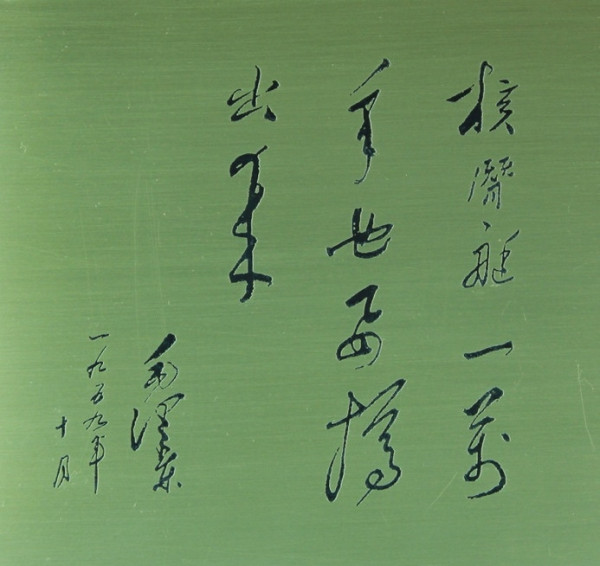 核潜艇一万
年也要搞
出来
毛泽东
一九五九年
十月